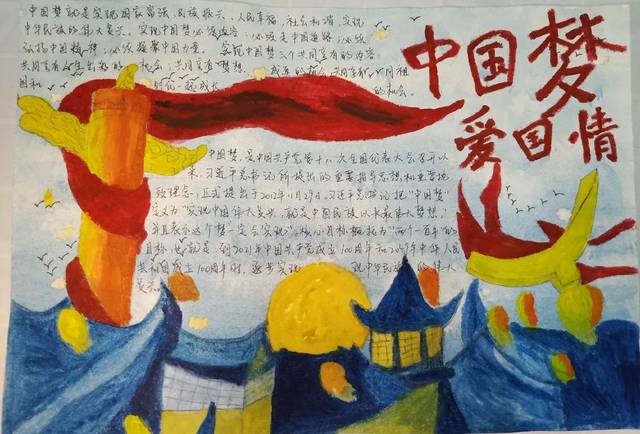 中国梦就是实现国家富强、民族振兴、人民幸福、社会和谐,实现
中华民族的伟大复兴。实现中国梦必须做客:必须走中国道路;必须
弘扬中国精神;必须凝聚中国力量。 实现中国梦三个共同享有的内容
共同享有人生出彩的机会;共同享有梦想 成真的机会;共同享有同祖
国和 时代一起成长 的机会。
中国梦
爱国情
中国梦,是中国共产党第十八次全国代表大会召开以
来,习近平总书记所提出的重要指导思想和重要执
政理念,正式提出于2012年11月29日。习近平总书记把"中国梦"
定义为"实现中国伟大复兴,就是中国民族以来最伟大梦想",
并且表示这个梦"一定会实现"。核心目标概括为"两个一百年"的
目标,也就是:到2021年中国共产党成立100周年和2049年中华人民
共和国成立100周年时,逐步实现 现中华民族的伟大
复兴。